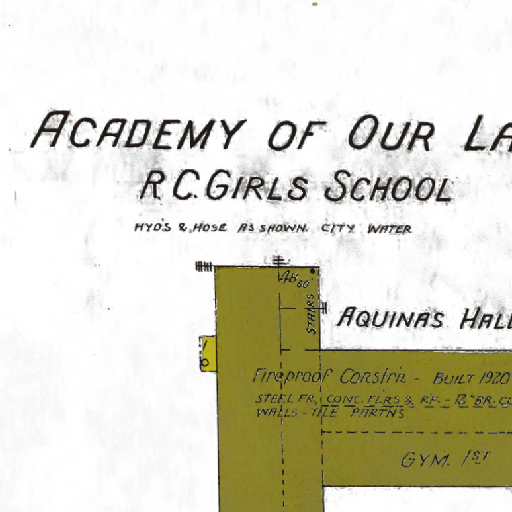 ACADEMY OF OUR LA
R.C. GIRLS SCHOOL
HYD'S & HOSE AS SHOWN. CITY WATER
STAIRS
AQUINAS HALL
FIREPROOF CONSTR'N - BUILT 1920
STEEL FR, CONC. FLRS & RF. - 12" BR. CU
WALLS - TILE PARTNS
GYM. 1ST